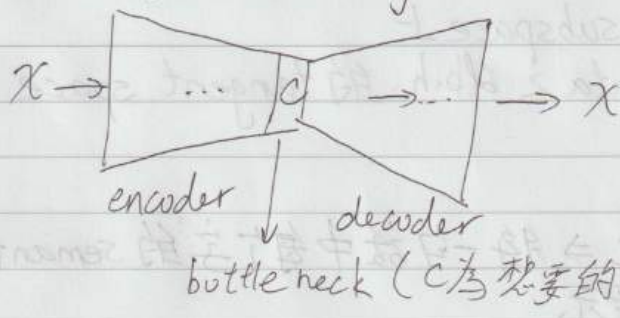 x → ... C → ... → x
encoder
decoder
bottle neck (C為想要的